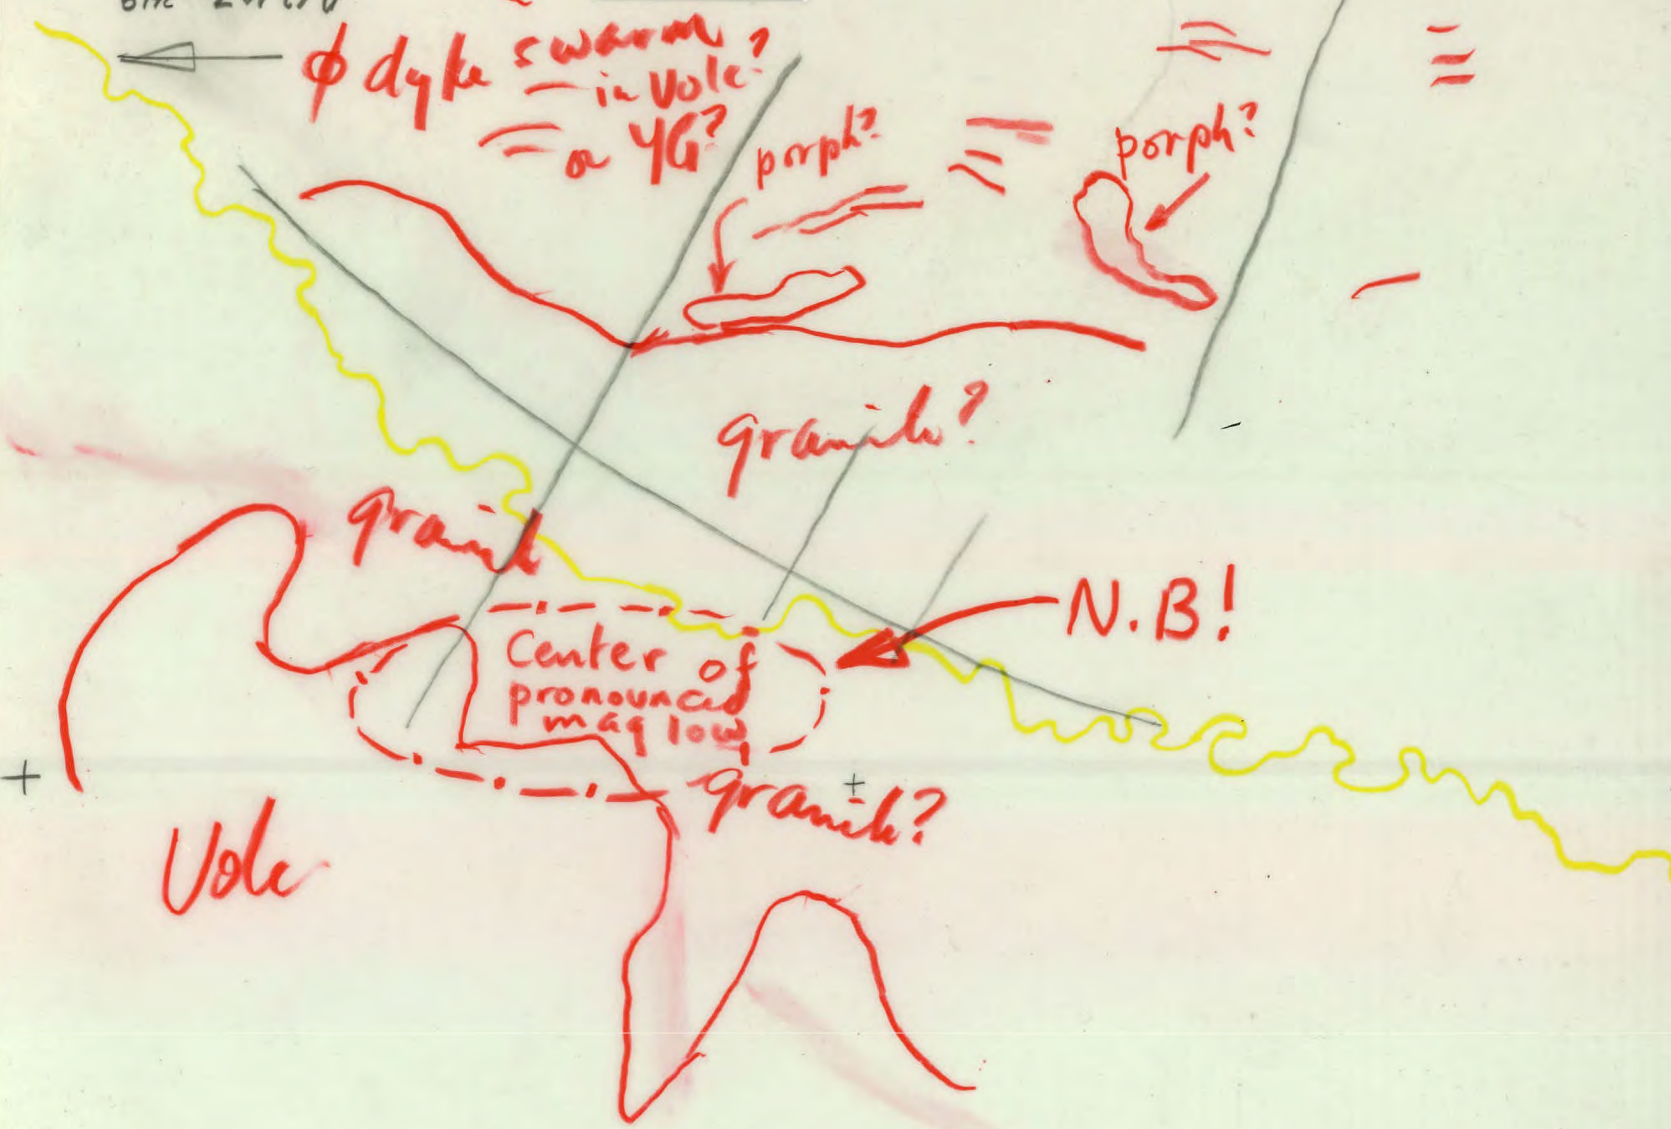 ϕ dyke swarm
in Volc?
or YG?
porph?
porph?
granite?
granite
N.B!
Center of
pronounced
mag low
granite?
Volc